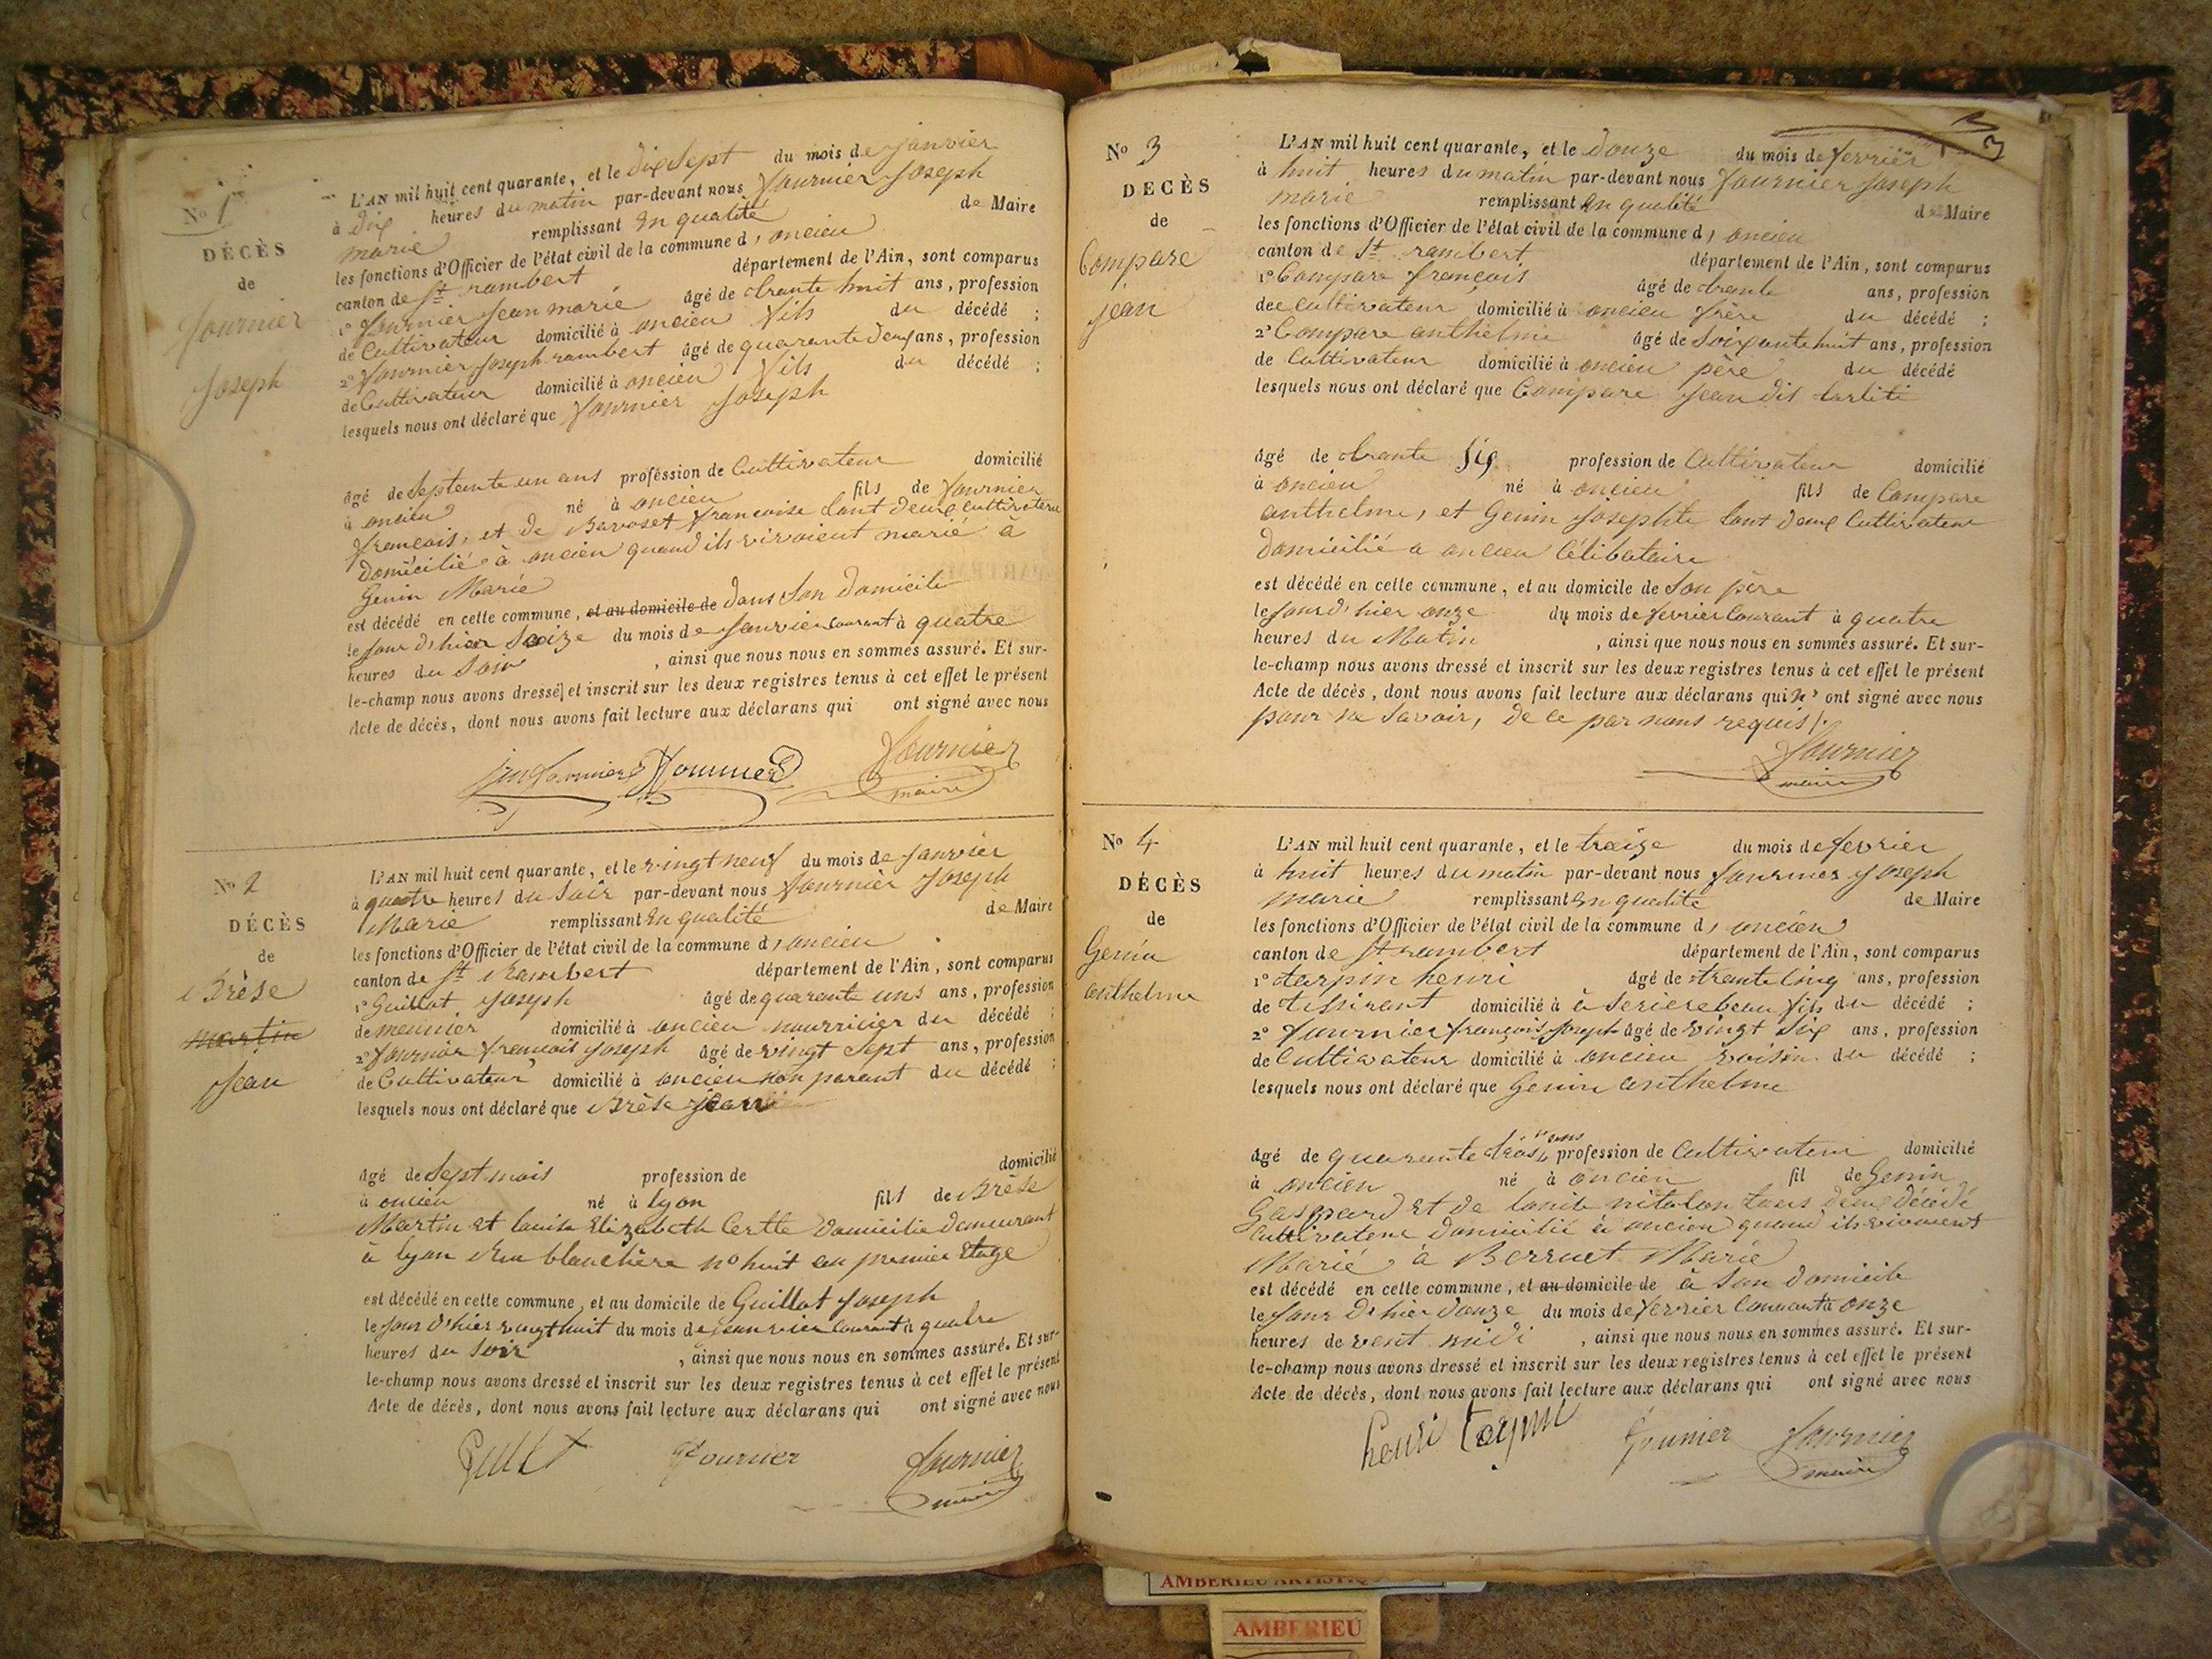 No 1
DÉCÈS
de
Fournier
Joseph
L'AN mil huit cent quarante, et le dix Sept du mois de janvier
à dix heures du matin par-devant nous fournier Joseph
marie remplissant en qualité de Maire
les fonctions d'Officier de l'état civil de la commune d, oncieu
canton de St rambert département de l'Ain, sont comparus
1° fournier Jean marie âgé de trante huit ans, profession
de Cultivateur domicilié à oncieu fils du décédé ;
2° fournier Joseph rambert âgé de quarante deux ans, profession
de Cultivateur domicilié à oncieu fils du décédé ;
lesquels nous ont déclaré que fournier Joseph
âgé de Septente un ans profession de Cultivateur domicilié
à oncieu né à oncieu fils de fournier
francois, et de Bavoset francoise tout deux Cultivateur
domicilié à oncieu quand ils vivoient marié à
Genin Marie
est décédé en cette commune, et au domicile de dans Son domicile
le jour d'hier Seize du mois de Janvier courant à quatre
heures du Soir , ainsi que nous nous en sommes assuré. Et sur-
le-champ nous avons dressé et inscrit sur les deux registres tenus à cet effet le présent
Acte de décès, dont nous avons fait lecture aux déclarans qui ont signé avec nous
Fournier
maire
No 2
DÉCÈS
de
Brèse
martin
Jean
L'AN mil huit cent quarante, et le vingt neuf du mois de Janvier
à quatre heures du Soir par-devant nous fournier Joseph
Marie remplissant en qualité de Maire
les fonctions d'Officier de l'état civil de la commune d, oncieu
canton de St Rambert département de l'Ain, sont comparus
1° Guillot Joseph âgé de quarante uns ans, profession
de meunier domicilié à oncieu nourricier du décédé ;
2° fournier francois Joseph âgé de vingt Sept ans, profession
de Cultivateur domicilié à oncieu non parant du décédé ;
lesquels nous ont déclaré que Brèse Jean
âgé de Sept mois profession de domicilié
à oncieu né à lyon fils de Brèse
Martin et louise Elizabeth domicilie demeurant
à lyon Rue blanchère no huit au premier Etage
est décédé en cette commune, et au domicile de Guillot Joseph
le Jour d'hier vingt huit du mois de janvier courant à quatre
heures du Soir , ainsi que nous nous en sommes assuré. Et sur-
le-champ nous avons dressé et inscrit sur les deux registres tenus à cet effet le présent
Acte de décès, dont nous avons fait lecture aux déclarans qui ont signé avec nous
Fournier Fournier
maire
3
No 3
DECÈS
de
Compare
Jean
L'AN mil huit cent quarante, et le douze du mois de fevrier
à huit heures du matin par-devant nous fournier Joseph
marie remplissant en qualité de Maire
les fonctions d'Officier de l'état civil de la commune d, oncieu
canton de St rambert département de l'Ain, sont comparus
1° Compare francois âgé de trante ans, profession
de Cultivateur domicilié à oncieu frère du décédé ;
2° Compare anthelme âgé de Soixante huit ans, profession
de Cultivateur domicilié à oncieu père du décédé
lesquels nous ont déclaré que Compare Jean dit
âgé de trante Six profession de Cultivateur domicilié
à oncieu né à oncieu fils de Compare
anthelme, et Genin Josephte tout deux Cultivateur
domicilié a oncieu Célibataire
est décédé en cette commune, et au domicile de Son père
le jour d'hier onze du mois de fevrier Courant à quatre
heures du Matin , ainsi que nous nous en sommes assuré. Et sur-
le-champ nous avons dressé et inscrit sur les deux registres tenus à cet effet le présent
Acte de décès, dont nous avons fait lecture aux déclarans qui n' ont signé avec nous
pour ne Savoir, de ce par nous requis.
Fournier
maire
No 4
DÉCÈS
de
Genin
anthelme
L'AN mil huit cent quarante, et le traize du mois de fevrier
à huit heures du matin par-devant nous fournier Joseph
marie remplissant en qualite de Maire
les fonctions d'Officier de l'état civil de la commune d, oncieu
canton de St rambert département de l'Ain, sont comparus
1° tarpin henri âgé de trante Cinq ans, profession
de tisserant domicilié à beau fils du décédé ;
2° fournier françois Joseph âgé de vingt Six ans, profession
de Cultivateur domicilié à oncieu voisin du décédé ;
lesquels nous ont déclaré que Genin anthelme
âgé de quarante trois ans profession de Cultivateur domicilié
à oncieu né à oncieu fil de Genin
Gaspard et de tous deux décédé
Cultivateur domicilié à oncieu quand ils vivoient
Marié à Berruet Marie
est décédé en cette commune, et au domicile de à Son domicile
le Jour d'hier douze du mois de fevrier Courant à onze
heures de vent midi , ainsi que nous nous en sommes assuré. Et sur-
le-champ nous avons dressé et inscrit sur les deux registres tenus à cet effet le présent
Acte de décès, dont nous avons fait lecture aux déclarans qui ont signé avec nous
henri Fournier
maire
AMBERIEU